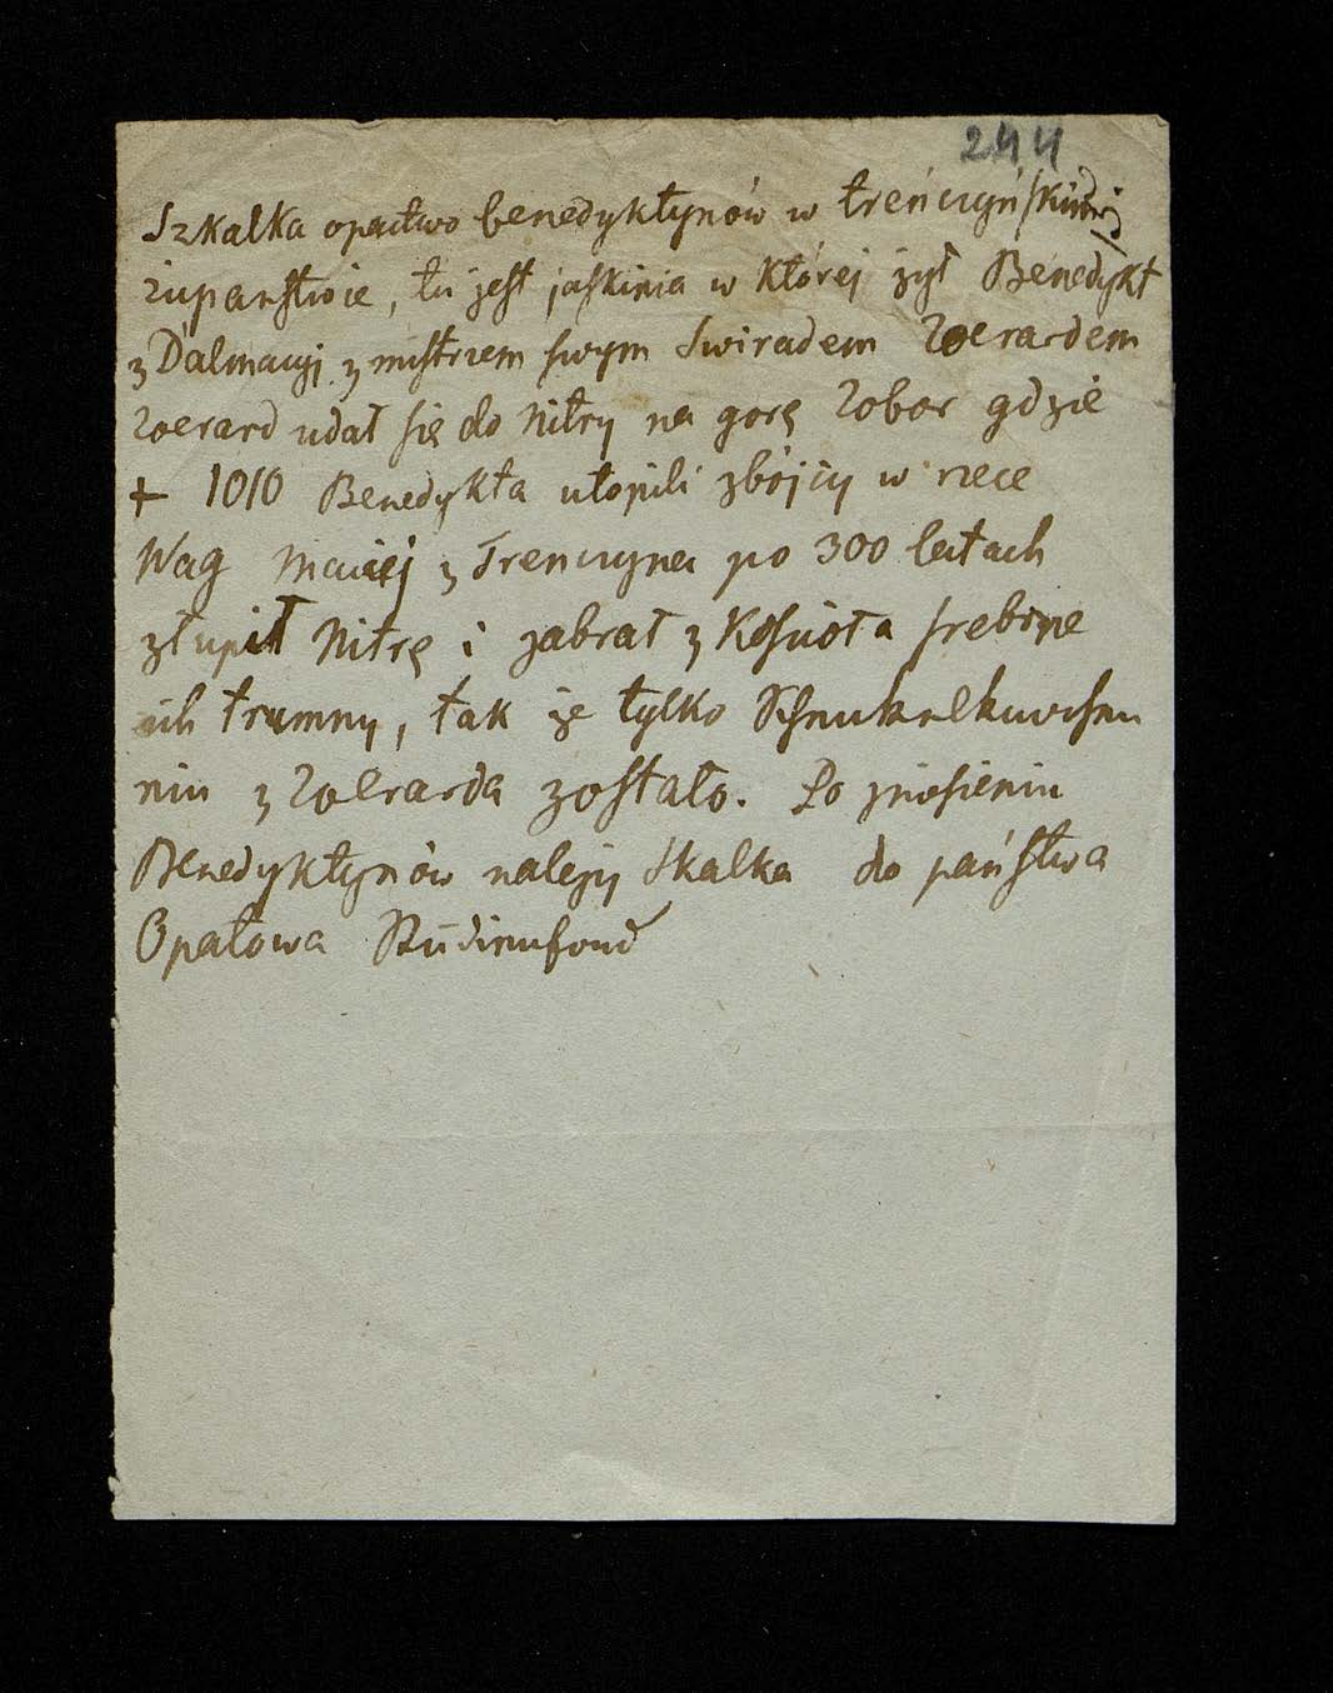 244
Szkalka opactwo benedyktynów w treńczyńskim
żupanstwie, tu jest jaskinia w której żył Benedykt
z Dalmacyj z mistrzem swym Swiradem Zoerardem
Zoerard udał się do Nitry na gorę Zobor gdzie
+ 1010 Benedykta utopili zbójcy w rzece
Wag Maciej z Trenczyna po 300 latach
złupił Nitrę i zabrał z Kościoła srebrne
ich trumny, tak że tylko
z Zoerarda zostało. Po zniesieniu
Benedyktynów należy Skalka do państwa
Opatowa Studienfond